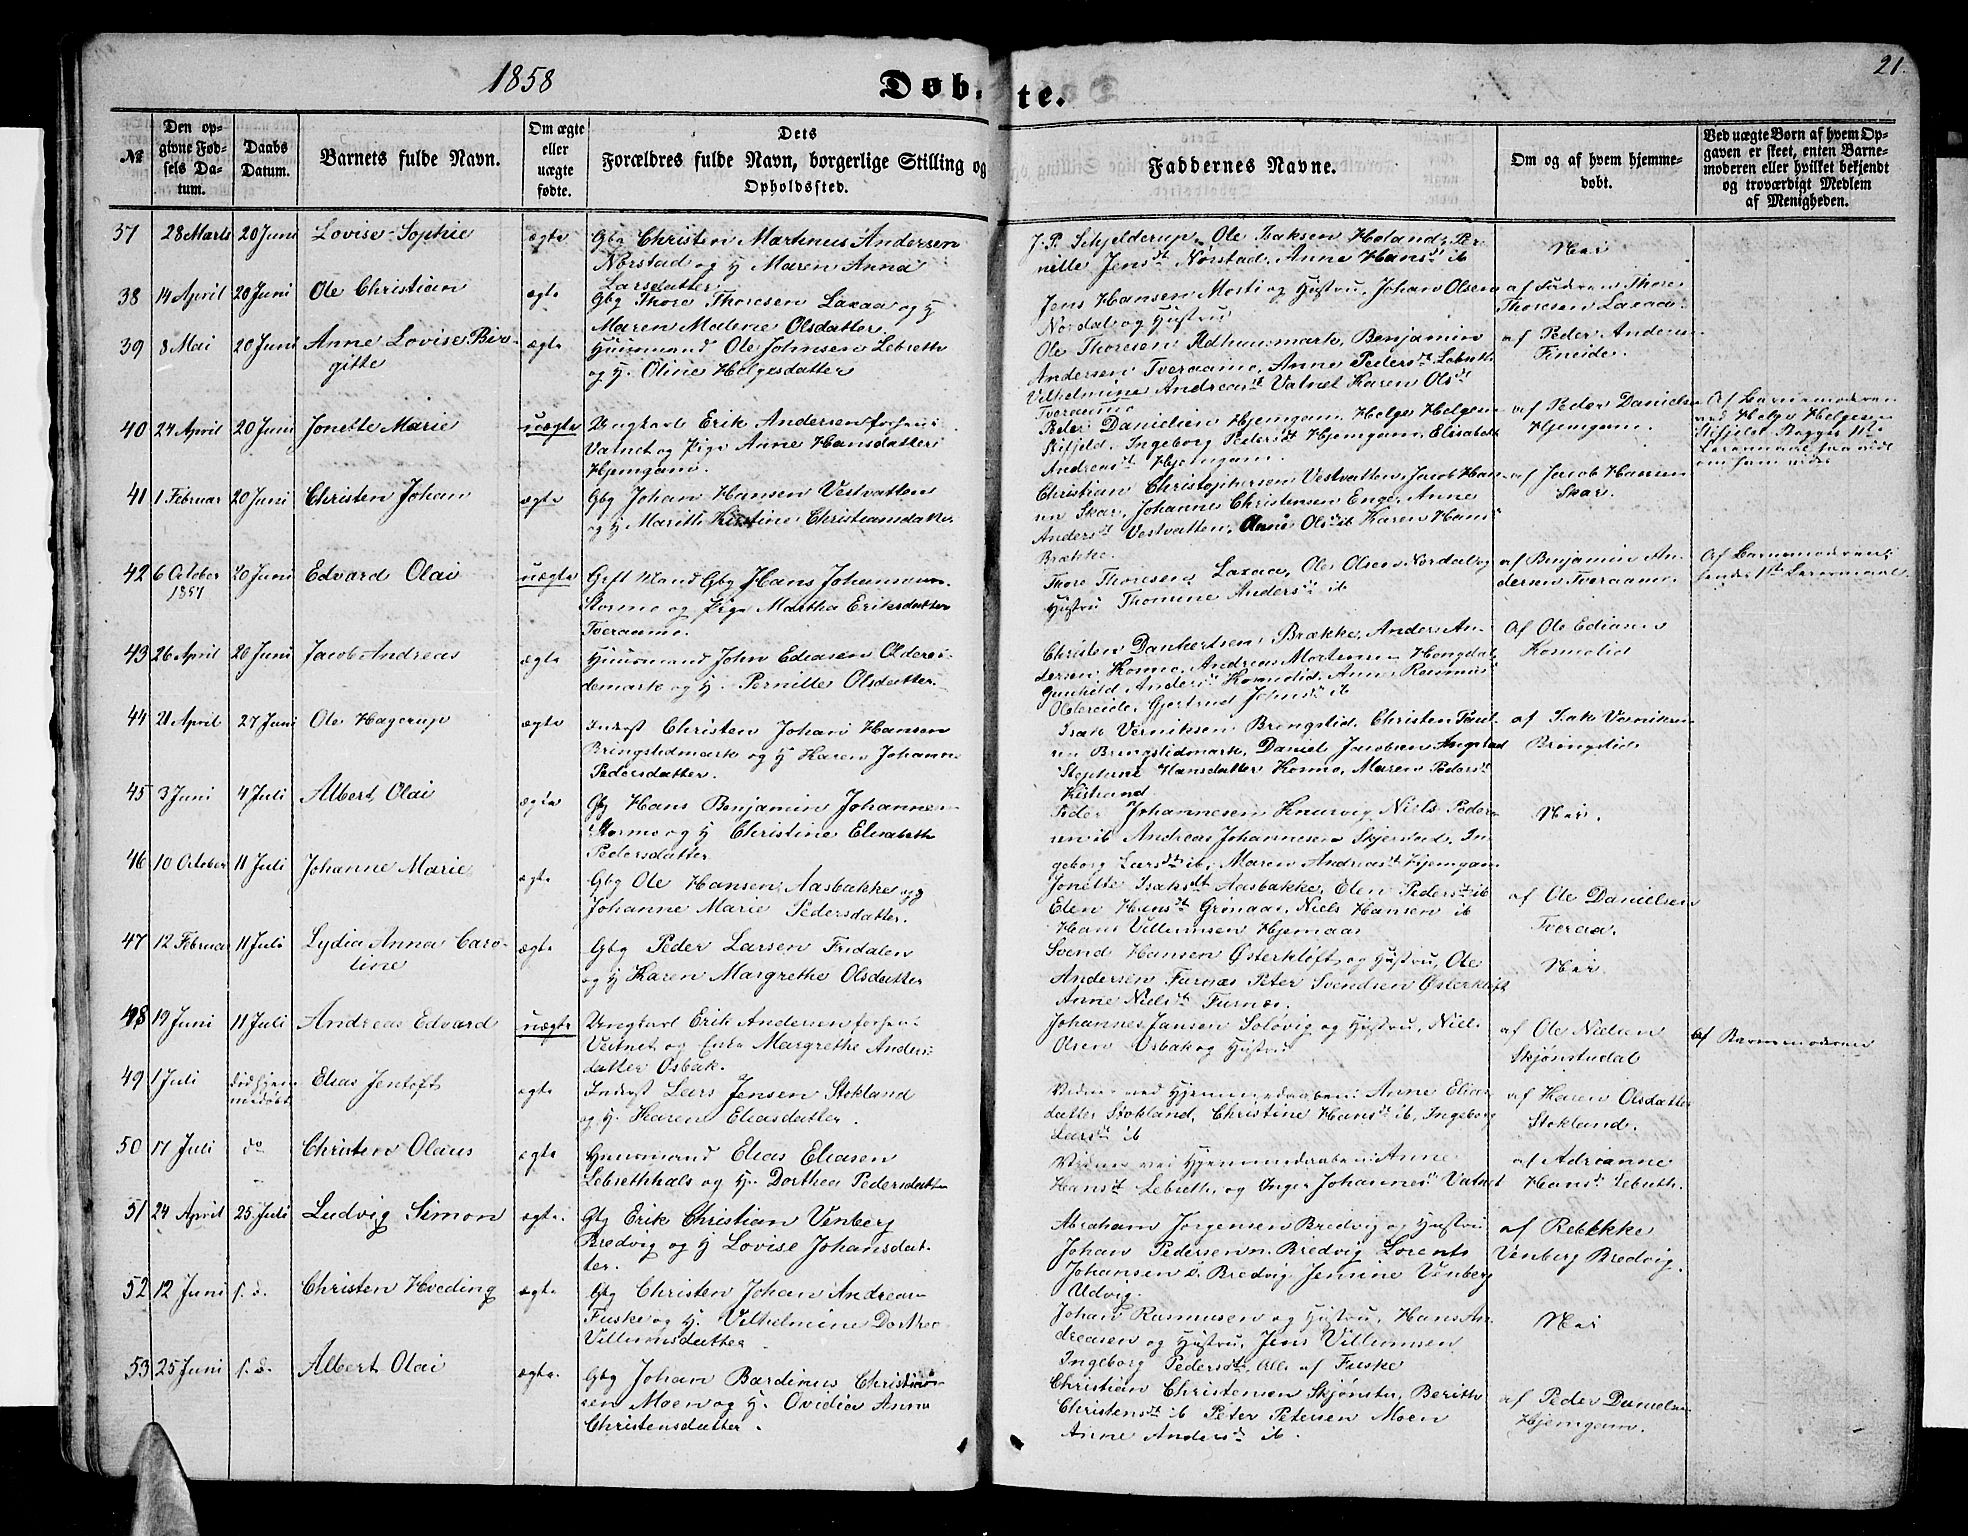 1858
Døb-
te.
21.
№
Den op-
givne Fød-
sels Da-
tum.
Daabs
Datum.
Barnets fulde Navn.
Om ægte
eller
uægte
fødte.
Dets
Forældres fulde Navn, borgerlige Stilling og
Opholdssted.
Faddernes Navne.
Om og af hvem hjemme-
døbt.
Ved uægte Børn af hvem Op-
gaven er skeet, enten Barne-
moderen eller hvilket bekjendt
og troværdigt Medlem
af Menigheden.
37 28 Marts 20 Juni Lovise Sophie ægte Gbg Christen Martinus Andersen
Nørstad og H Maren Anna
Larsdatter
J. P. Schjelderup, Ole Isaksen Holand, Per-
nille Jensdt Nørstad, Anne Hansdt ib
Nei
38 14 April 20 Juni Ole Christian ægte Gbg Thore Thoresen Laxaa og H
Maren Malene Olsdatter
Jens Hansen Mosti og Hustru, Johan Olsen
Nordal og Hustru
af Faderen Thore
Thoresen Laxaa
39 8 Mai 20 Juni Anne Lovise Bir-
gitte
ægte Huusmand Ole Johnsen Lebreth
og H. Oline Helgesdatter
Ole Thoresen Benjamin
Andersen Tveraamo, Anne Pedersdt Lebreth
Vilhelmine Andreasdt Vatnet Karen Olsdt
Tveraamo
af Peder Anderse
Fineide.
40 24 April 20 Juni Jonette Marie uægte Ungkarl Erik Andersen forhen:
Vatnet og Pige Anne Hansdatter
Hjemgam.
Peder Danielsen Hjemgam, Helge Helgesen
Stifjeld, Ingeborg Pedersdt Hjemgam, Elisabeth
Andreasdt Hjemgam
af Peder Danielse
Hjemgam.
Af Barnemoderen
ved Helge Helgesen
Stifjeld. Begges 1ste
Leiermaal saavidt
om ham vides
41 1 Februar 20 Juni Christen Johan ægte Gbg Johan Hansen Vestvatten
og H Marith Kirstine Christiansdatter
Christian Christophersen Vestvatten, Jacob Han-
sen Skar, Johannes Christensen Enge, Anne
Andersdt Vestvatten, Anne Olsdt ib Karen Hans
Brække.
af Jacob Hansen
Skar.
42 6 October
1857
20 Juni Edvard Olai uægte Gift Mand Gbg Hans Johannesen
Stormo og Pige Martha Eriksdatter
Tveraamo.
Thore Thoresen Laxaa, Ole Olsen Nordal og
Hustru Thomine Andersdt ib
af Benjamin An-
dersen Tveraamo.
Af Barnemoderen;
hendes 1ste Leiermaal.
43 26 April 20 Juni Jacob Andreas ægte Huusmand John Ediasen Olderei-
demark og H. Pernille Olsdatter.
Christen Dankertsen Brække, Anders An-
dersen Kosmo, Andreas Mortensen Hongdal,
Gunhild Andersdt Kosmolid, Anne Rasmus
Oldereide, Gjertrud Johnsdt ib
Af Ole Ediasen
Kosmolid
44 21 April 27 Juni Ole Hagerup ægte Inderst Christen Johan Hansen
Bringslidmark og H Karen Johanne
Pedersdatter.
Isak Verniksen Bringslid, Christen Paul-
sen Bringslidmark, Daniel Jacobsen Angstad
Stephine Hansdatter Kosmo, Maren Pedersdt
Kistrand
af Isak Verniksen
Bringslid
45 3 Juni 4 Juli Albert Olai ægte Gbg Hans Benjamin Johannes-
Stormo og H Christine Elisabeth
Pedersdatter
Peder Johannesen Knarvig, Niels Peder-
sen ib Andreas Johannesen Skjerstad, In-
geborg Larsdt ib, Maren Andreasdt Hjemgam
Nei.
46 10 October 11 Juli Johanne Marie ægte Gbg Ole Hansen Aasbakke og H
Johanne Marie Pedersdatter.
Jonette Isaksdt Aasbakke, Elen Pedersdt ib
Elen Hansdt Grønaas, Niels Hansen ib
Hans Villumsen Hjemaas
af Ole Danielsen
Tveraa.
47 12 Februar 11 Juli Lydia Anna Caro-
line
ægte Gbg Peder Larsen Fridalen
og H Karen Margrethe Olsdatter
Svend Hansen Østerkløft og Hustru, Ole
Andersen Furnæs Peter Svendsen Østerkløft
Anne Nielsdt Furnæs.
Nei
48 19 Juni 11 Juli Andreas Edvard uægte Ungkarl Erik Andersen forhen:
Vatnet og Enke Margrethe Anders-
datter Osbak.
Johannes Jansen Soløvig og Hustru, Niels
Olsen Osbak og Hustru
af Ole Nielsen
Skjønstudal
af Barnemoderen
49 1 Juli død hjem-
medøbt
Elias Jentoft ægte Inderst Lars Jensen Stokland
og H. Karen Eliasdatter.
Vidner ved Hjemmedaaben: Anne Elias-
datter Stokland, Christine Hansdt ib, Ingeborg
Larsdt ib
af Karen Olsdatter
Stokland.
50 17 Juli do Christen Olaus ægte Huusmand Elias Eliasen
Lebrethhals og H. Dorthea Pedersdatter
Vidner ved Hjemmedaaben: Anne
Hansdt Lebreth, og Inger Johannesdt Vatnet
af Adrianne
Hansdt Lebreth.
51 24 April 25 Juli Ludvig Simon ægte. Gbg Erik Christian Venberg
Bredvig og H Lovise Johansdat-
ter.
Abraham Jørgensen Bredvig og Hustru
Johan Pedersen Bredvig Lorents
Johansen Bredvig Jemine Venberg
Udvig.
af Rebekke
Venberg Bredvig.
52 12 Juni s. D. Christen Hveding ægte Gbg Christen Johan Andreas-
Fuske og H. Vilhelmine Dorthea
Villumsdatter
Johan Rasmusen og Hustru, Hans An-
dreasen og Hustru, Jens Villumsen
Ingeborg Pedersdt, Alle af Fuske
Nei
53 25 Juni s. D. Albert Olai ægte. Gbg Johan Bardinus Christian-
sen Moen og H. Ovidia Anna
Christensdatter.
Christian Christensen Skjønstu, Berith
Christensdt ib Peter Petersen Moen
Anne Andersdt ib.
af Peder Danielsen
Hjemgam.